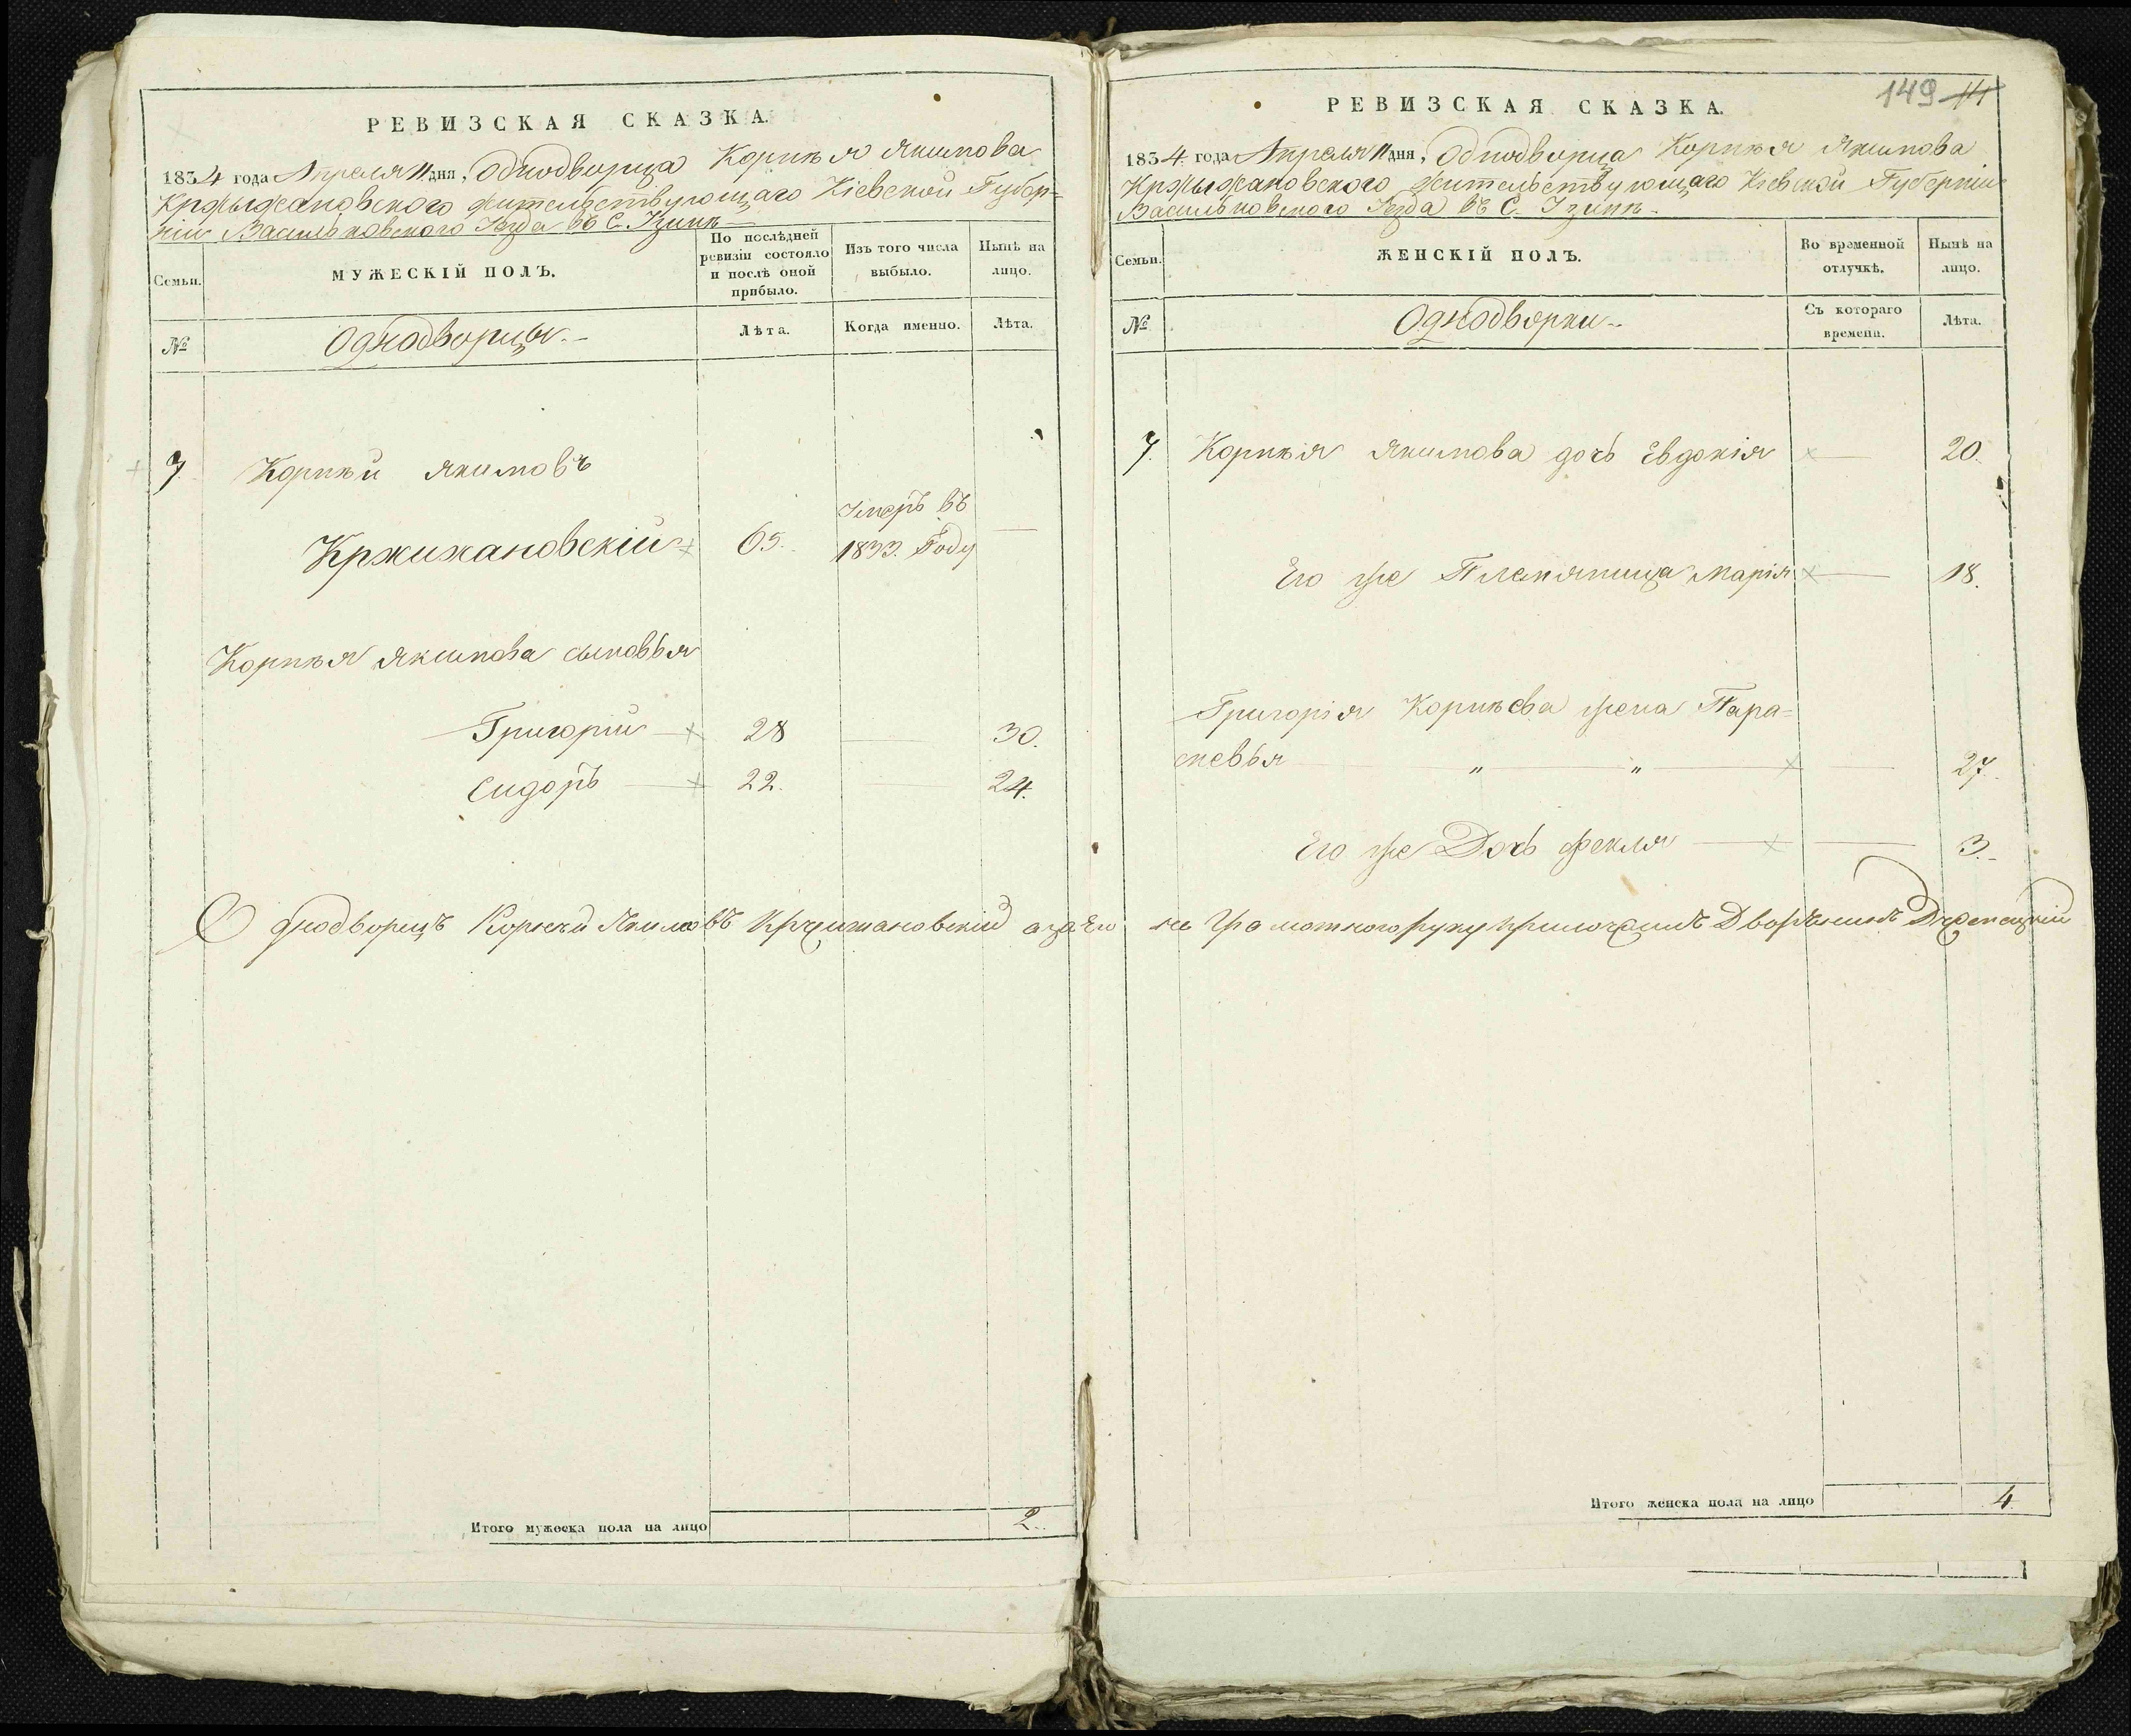 РЕВИЗСКАЯ СКАЗКА.
1834 года Апреля 11 дня, Однодворца Корнѣя Якимова
Кржыжановского жительствующаго Кіевской Губер=
ніи Васильковского Уезда въ С.
Семьи.
МУЖЕСКІЙ ПОЛЪ.
По послѣдней ревизіи состояло и послѣ оной прибыло.
Изъ того числа выбыло.
Нынѣ на лицо.
№
Однодворцы.
Лѣта.
Когда именно.
Лѣта.
7 Корнѣй Якимовъ
Кржижановскій 65. Умеръ въ 1833. Году —
Корнѣя Якимова сыновья
Григорій — 28 — 30.
Сидоръ — 22. — 24.
Однодворецъ Корнѣй Якимовъ Кржижановскій а за Его
Итого мужеска пола на лицо 2.
149 14
РЕВИЗСКАЯ СКАЗКА.
1834 года Апреля 11 дня, Однодворца Корнѣя Якимова
Кржыжановского жительствующаго Кіевской Губерніи
Васильковского Уезда въ С.
Семьи.
ЖЕНСКІЙ ПОЛЪ.
Во временной отлучкѣ.
Нынѣ на лицо.
№
Однодворки.
Съ котораго времени.
Лѣта.
7. Корнѣя Якимова дочь Евдокія — 20.
Его же Племянница Марія — 18.
Григорія Корнѣева жена Пара=
скевья — " — " — 27.
Его же Дочь Фекля — — 3.
не Грамотного руку приложилъ Дворянинъ
Итого женска пола на лицо 4